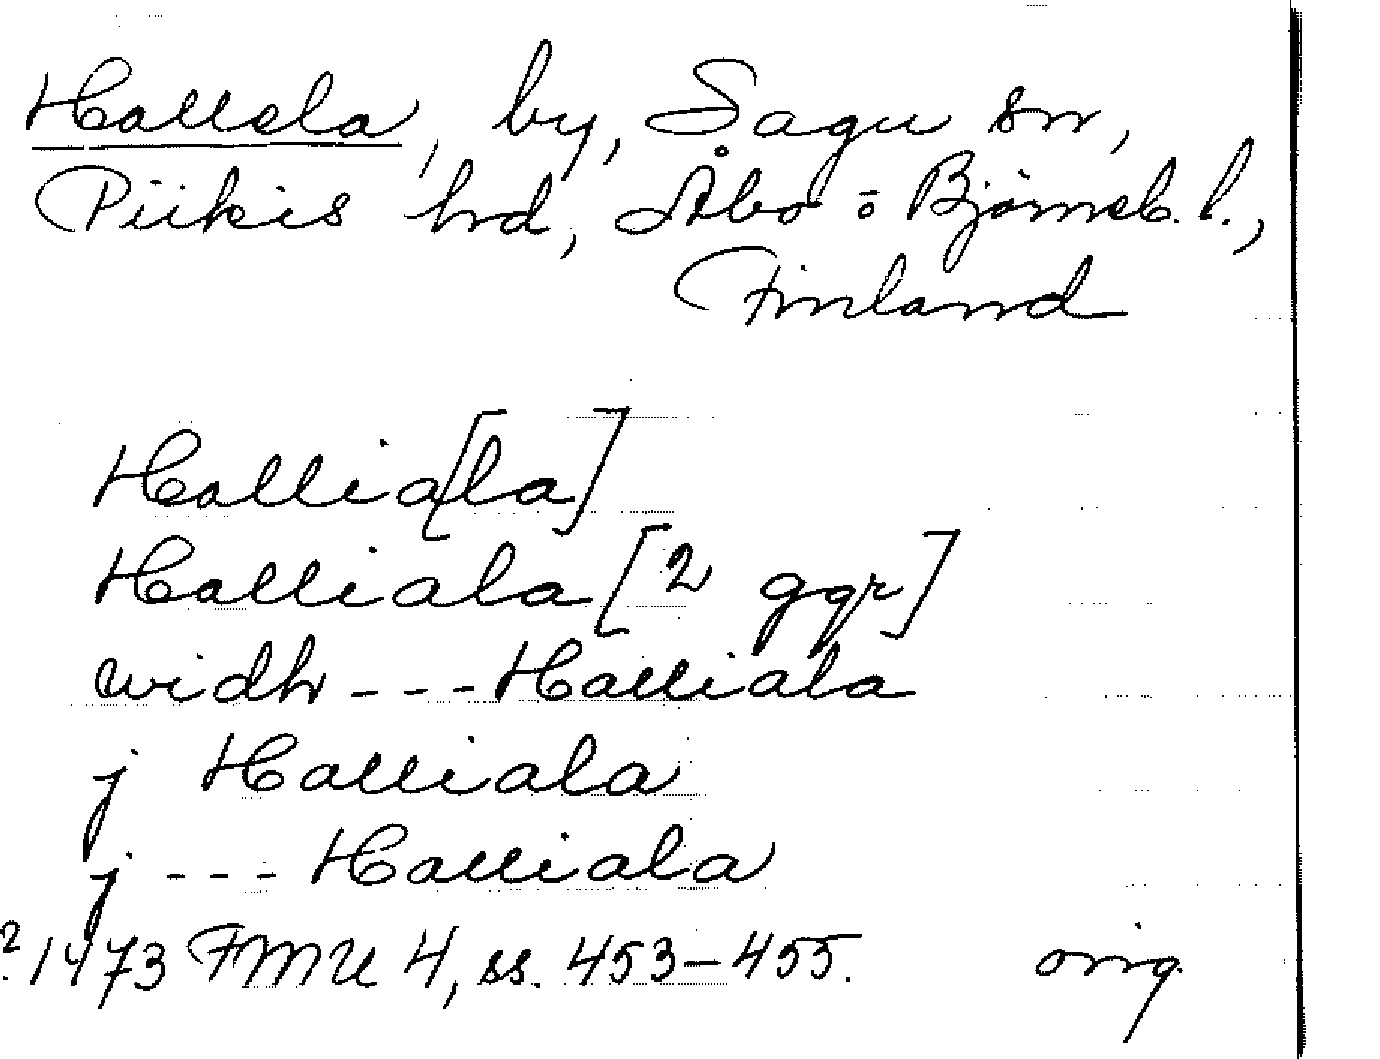 Hallela, by, Sagu sn,
Piikis hrd, Åbo = Björneb. l.,
Finland
Hallia[la]
Halliala [2 ggr]
widh --- Halliala
j Halliala
j --- Halliala
1473 FMU 4, ss. 453-455. orig.